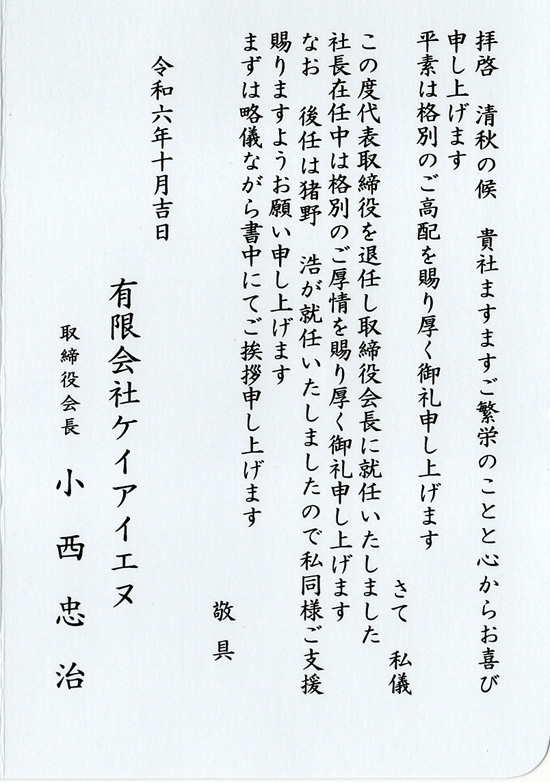 拝啓　清秋の候　貴社ますますご繁栄のことと心からお喜び
申し上げます
平素は格別のご高配を賜り厚く御礼申し上げます
さて　私儀
この度代表取締役を退任し取締役会長に就任いたしました
社長在任中は格別のご厚情を賜り厚く御礼申し上げます
なお　後任は猪野　浩が就任いたしましたので私同様ご支援
賜りますようお願い申し上げます
まずは略儀ながら書中にてご挨拶申し上げます
敬具
令和六年十月吉日
有限会社ケイアイエヌ
取締役会長　小西忠治